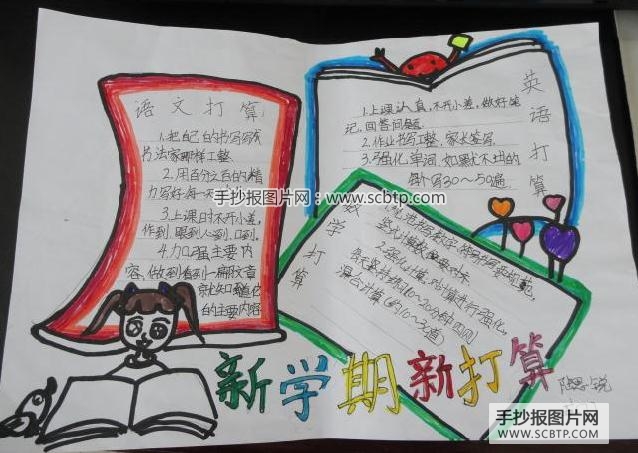 语文打算
1.把自己的书写写有
书法家那样工整
2.用百分之百的精
力写好每一
3.上课时不开小差,
作到眼到心到、口到。
4.加强主要内
容,做到看到一篇文章
就知道它
的主要内容
英语打算
1.上课认真,不开小差,做好笔
记,回答问题
2.作业书写工整,家长签写
3.强化单词,如果尤不出的
每个写30~50遍
数学打算
2.强化计算,对计算进行强化,
每天坚持练10~20分钟四则
混合计算(约10~30道)
新学期新打算
手抄报图片网:www.scbtp.com
手抄报图片网
WWW.SCBTP.COM